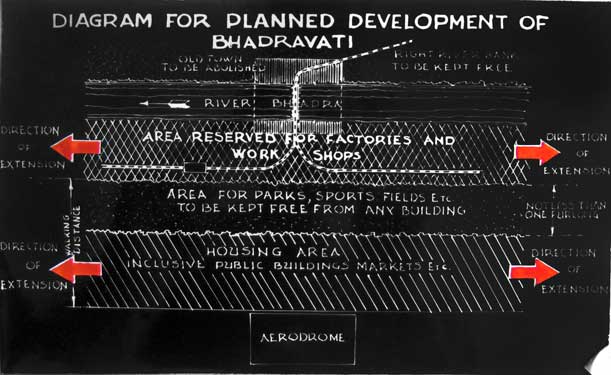 DIAGRAM FOR PLANNED DEVELOPMENT OF
BHADRAVATI
OLD TOWN
TO BE ABOLISHED
RIGHT RIVER BANK
TO BE KEPT FREE
RIVER BHADRA
DIRECTION
OF
EXTENSION
AREA RESERVED FOR FACTORIES AND
WORK SHOPS
DIRECTION
OF
EXTENSION
AREA FOR PARKS, SPORTS FIELDS ETC
TO BE KEPT FREE FROM ANY BUILDING
NOT LESS THAN
ONE FURLONG
WALKING
DISTANCE
DIRECTION
OF
EXTENSION
HOUSING AREA
INCLUSIVE PUBLIC BUILDINGS MARKETS ETC.
DIRECTION
OF
EXTENSION
AERODROME